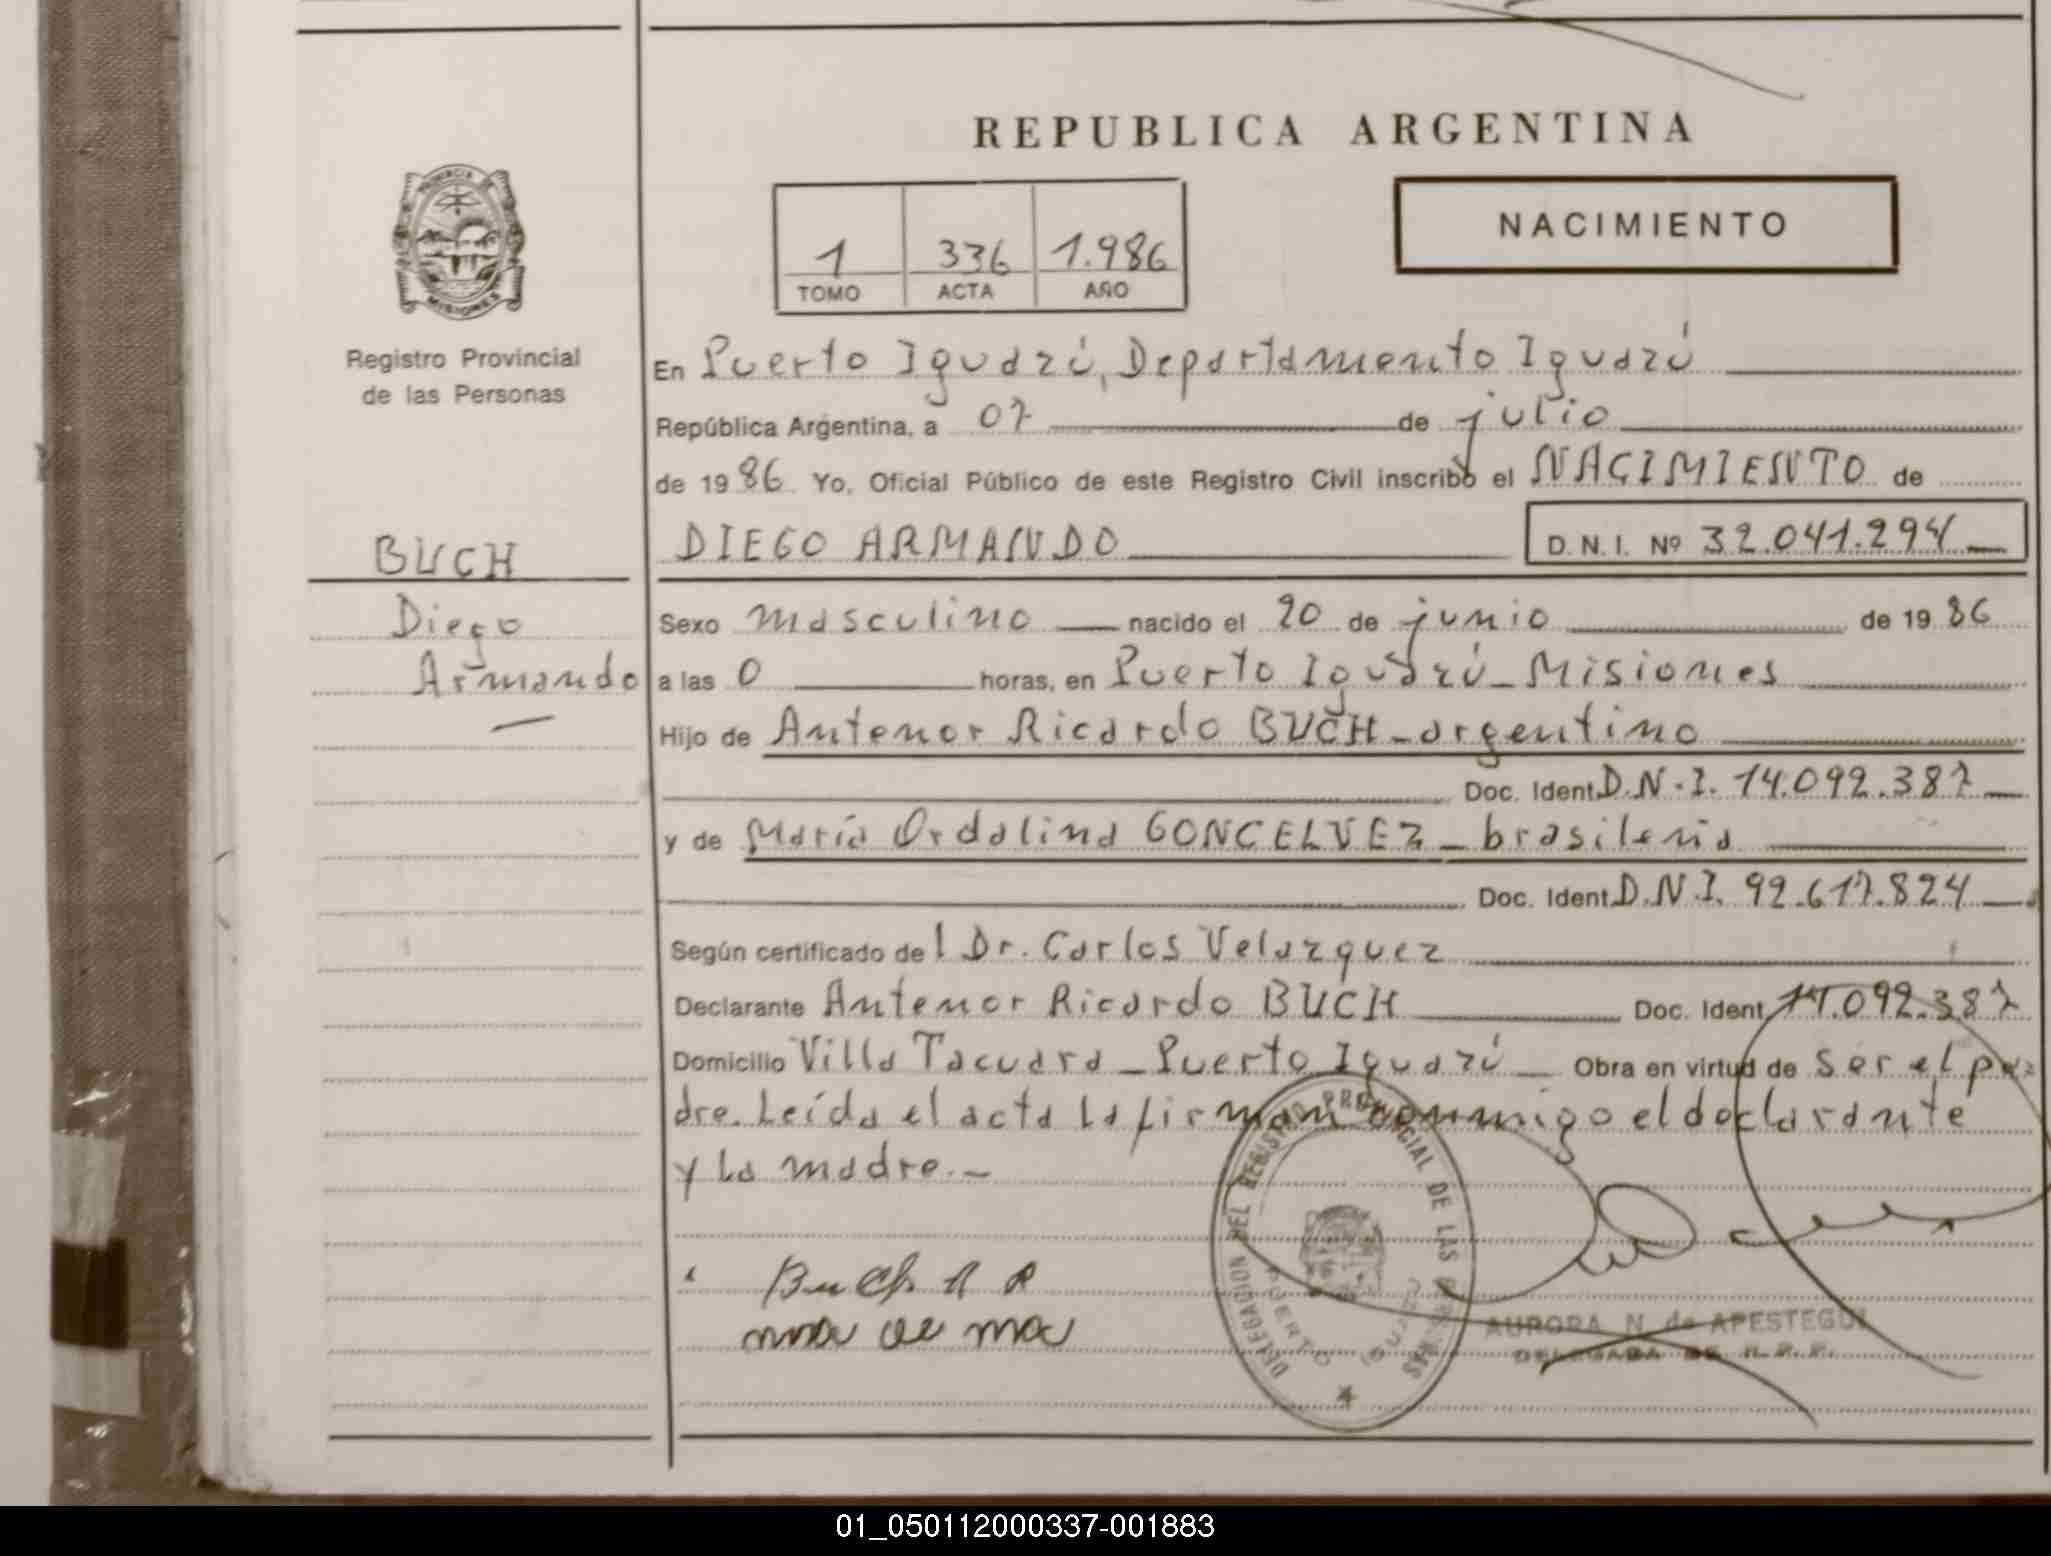 REPUBLICA ARGENTINA
PROVINCIA DE
MISIONES
Registro Provincial
de las Personas
NACIMIENTO
1 336 1.986
TOMO ACTA AÑO
En Puerto Iguazú, Departamento Iguazú
República Argentina, a 07 de julio
de 1986 Yo, Oficial Público de este Registro Civil inscribo el NACIMIENTO de
BUCH
Diego
Armando
DIEGO ARMANDO D. N. I. Nº 32.041.294
Sexo masculino nacido el 20 de junio de 1986
a las 0 horas, en Puerto Iguazú_Misiones
Hijo de Antenor Ricardo BUCH_argentino
Doc. Ident. D.N.I. 14.092.387
y de María Ordalina GONCELVEZ_brasileña
Doc. Ident. D.N.I. 92.617.824
Según certificado del Dr. Carlos Velazquez
Declarante Antenor Ricardo BUCH Doc. Ident. 14.092.387
Domicilio Villa Tacuara_Puerto Iguazú Obra en virtud de ser el pa=
dre. Leída el acta la firman conmigo el declarante
y la madre._
Buch A R
DELEGACION DEL REGISTRO PROVINCIAL DE LAS PERSONAS
PUERTO IGUAZU
AURORA N. de APESTEGUI
DELEGADA DE R.P.P.
01_050112000337-001883